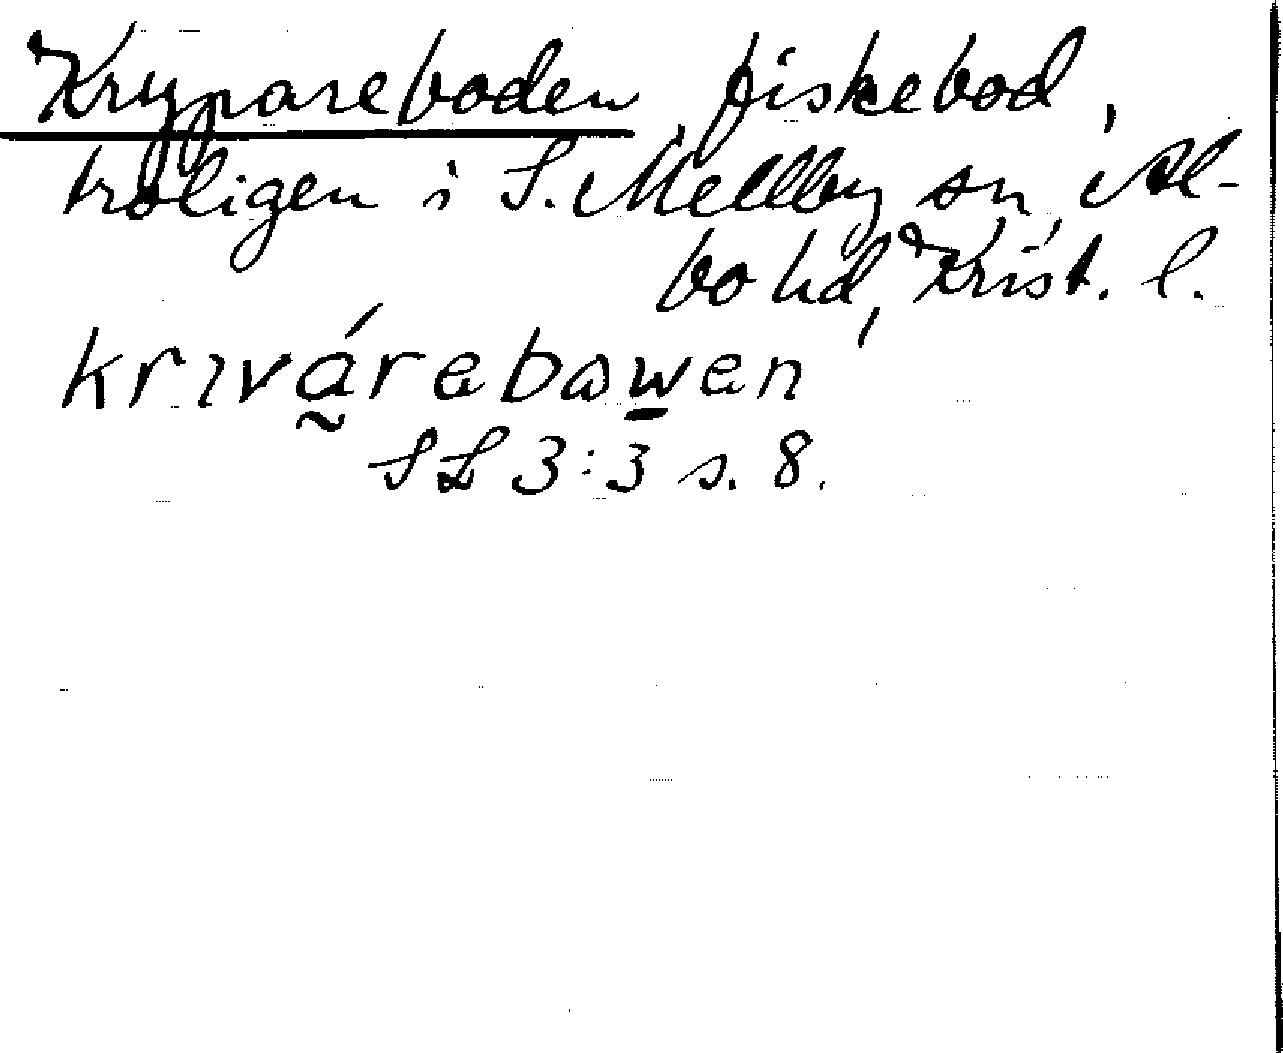 Krypareboden, fiskebod,
troligen i S. Mellby sn, Al-
bo hd, Krist. l.
krɪvá̰rebɷw̲en
SL 3:3 s. 8.